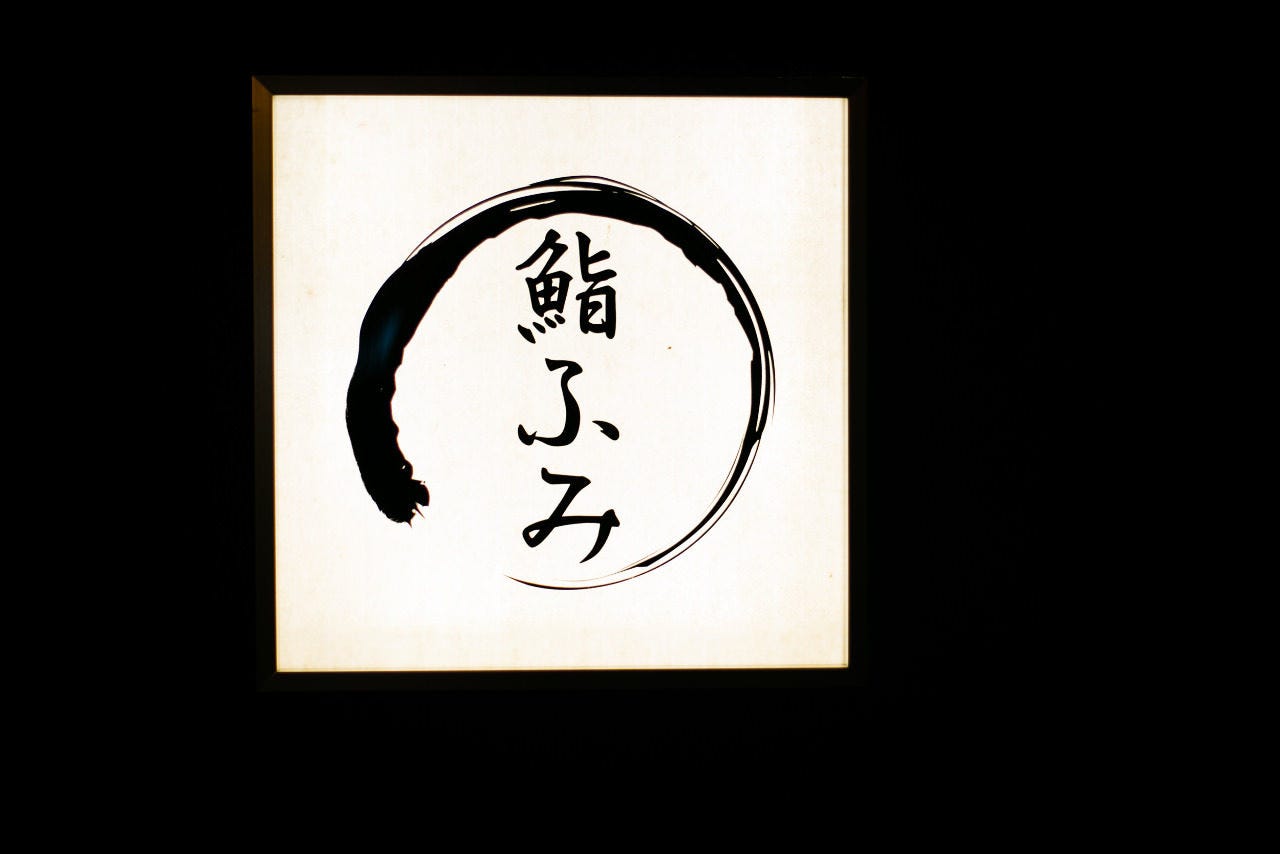 鮨ふみ